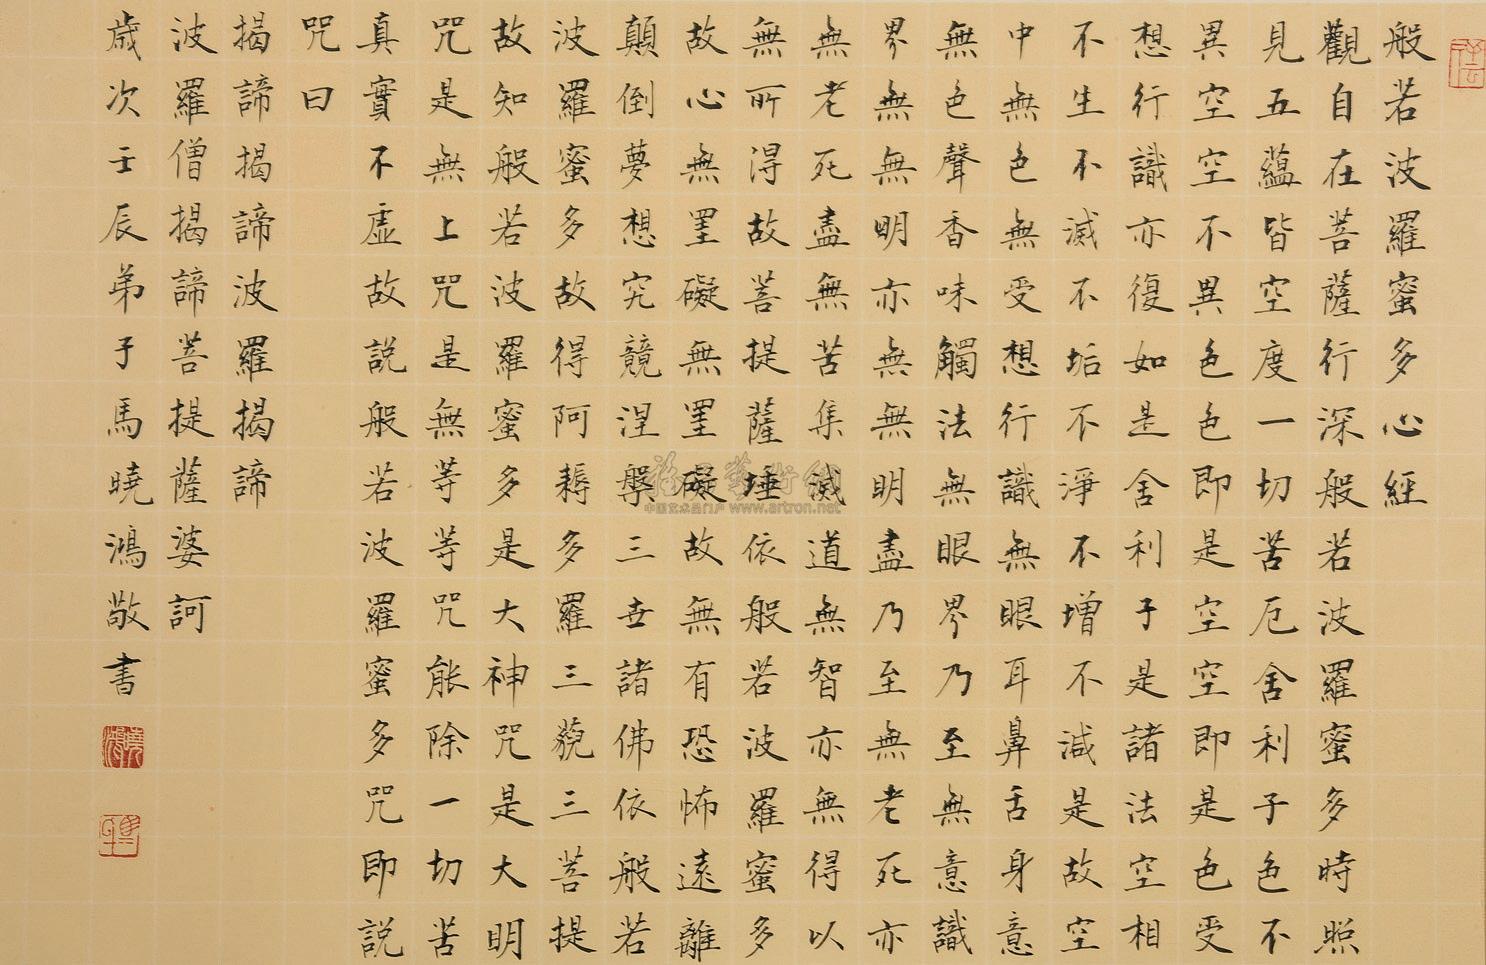 般若波羅蜜多心經
觀自在菩薩行深般若波羅蜜多時照
見五蘊皆空度一切苦厄舍利子色不
異空空不異色色即是空空即是色受
想行識亦復如是舍利子是諸法空相
不生不滅不垢不淨不增不減是故空
中無色無受想行識無眼耳鼻舌身意
無色聲香味觸法無眼界乃至無意識
界無無明亦無無明盡乃至無老死亦
無老死盡無苦集滅道無智亦無得以
無所得故菩提薩埵依般若波羅蜜多
故心無罣礙無罣礙故無有恐怖遠離
顛倒夢想究競涅槃三世諸佛依般若
波羅蜜多故得阿耨多羅三藐三菩提
故知般若波羅蜜多是大神咒是大明
咒是無上咒是無等等咒能除一切苦
真實不虛故說般若波羅蜜多咒即說
咒曰
揭諦揭諦波羅揭諦
波羅僧揭諦菩提薩婆訶
歲次壬辰弟子馬曉鴻敬書
曉鴻
中国艺术品门户 www.artron.net